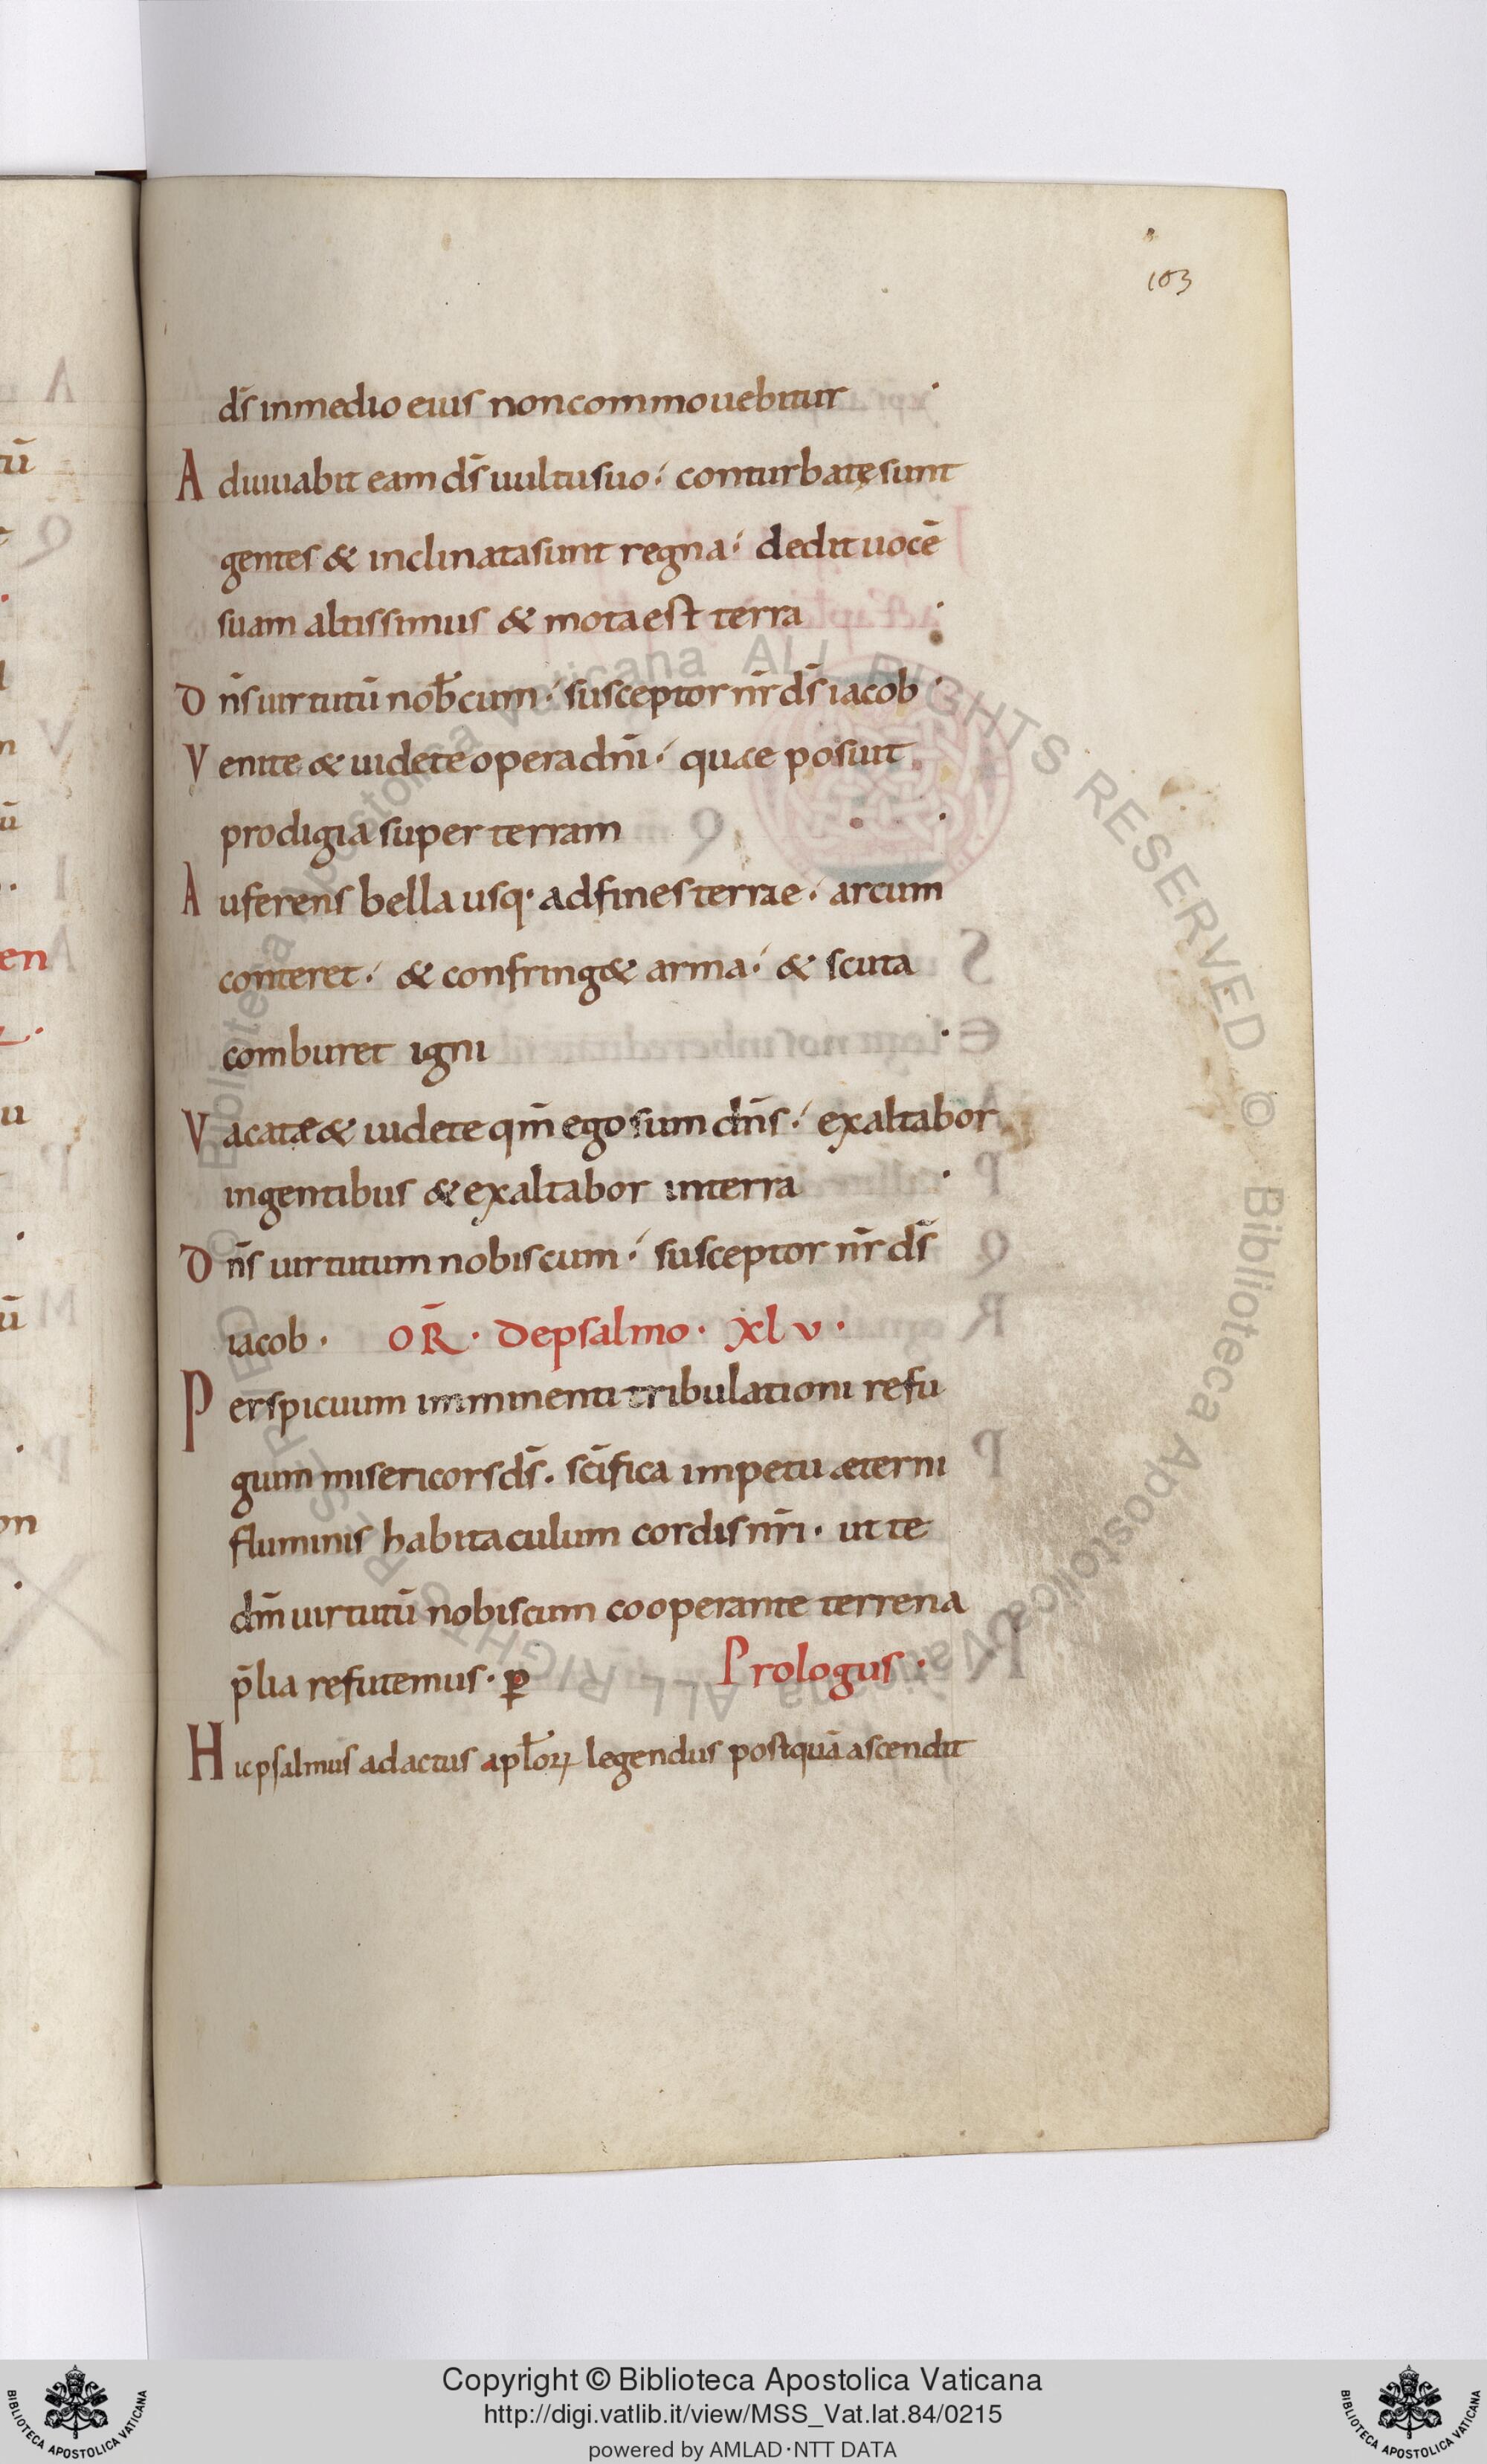 103
dr̄ inmedio eius noncommouebitur ·
Adiuuabit eam dr̄ uultusuo·́ conturbatęsunt
gentes & inclinatasunt regna·́ dedit uocē
suam altissimus & motaest terra ·
Dn̄s uirtutū nob̄cum·́ susceptor nr̄ ds̄ iacob ·
Venite & uidete opera dn̄i·́ quae posuit
prodigia super terram ·
Auferens bella usq· adfines terrae·́ arcum
conteret·́ & confring& arma·́ & scuta
comburet igni ·
Vacatæ& uidete qm̄ ego sum dn̄s·́ exaltabor
ingentibus & exaltabor interra ·
Dn̄s uirtutum nobiscum·́ susceptor nr̄ ds̄
iacob · OR̄ · Depsalmo · Xlv ·
Perspicuum imminenti tribulationi refu
gium misericors ds̄. scīfica impetu æterni
fluminis habitaculum cordis nr̄i · ut te
dn̄m uirtutū nobiscum cooperante terrena
p̄lia refutemus · p̲ Prologus ·
Hicpsalmus adactus apl̄oꝝ legendus postquā ascendit
tū
en
u
ū
on
Copyright © Biblioteca Apostolica Vaticana
http://digi.vatlib.it/view/MSS_Vat.lat.84/0215
powered by AMLAD·NTT DATA
BIBLIOTECA APOSTOLICA VATICANA
BIBLIOTECA APOSTOLICA VATICANA
© Biblioteca Apostolica Vaticana ALL RIGHTS RESERVED © Biblioteca Apostolica Vaticana ALL RIGHTS RESERVED